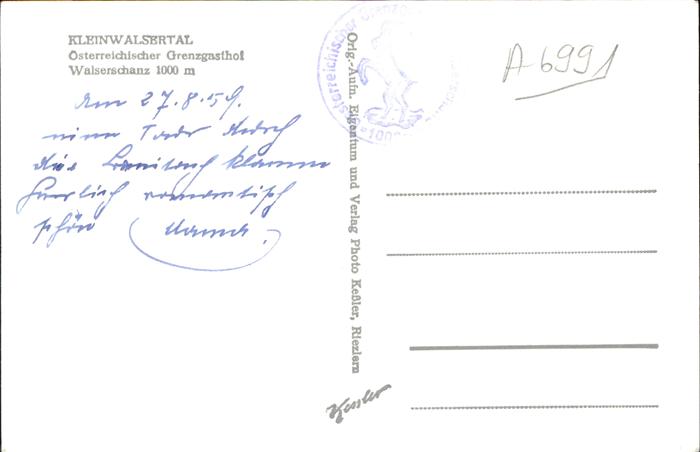 KLEINWALSERTAL
Österreichischer Grenzgasthof
Walserschanz 1000 m
Am 27.8.59.
eine Tour durch
die Breitach klamm
herrlich romantisch
schön Mama.
Orig.-Aufn. Eigentum und Verlag Photo Keßler, Riezlern
Kessler
Österreichischer Grenz
1000
A 6991